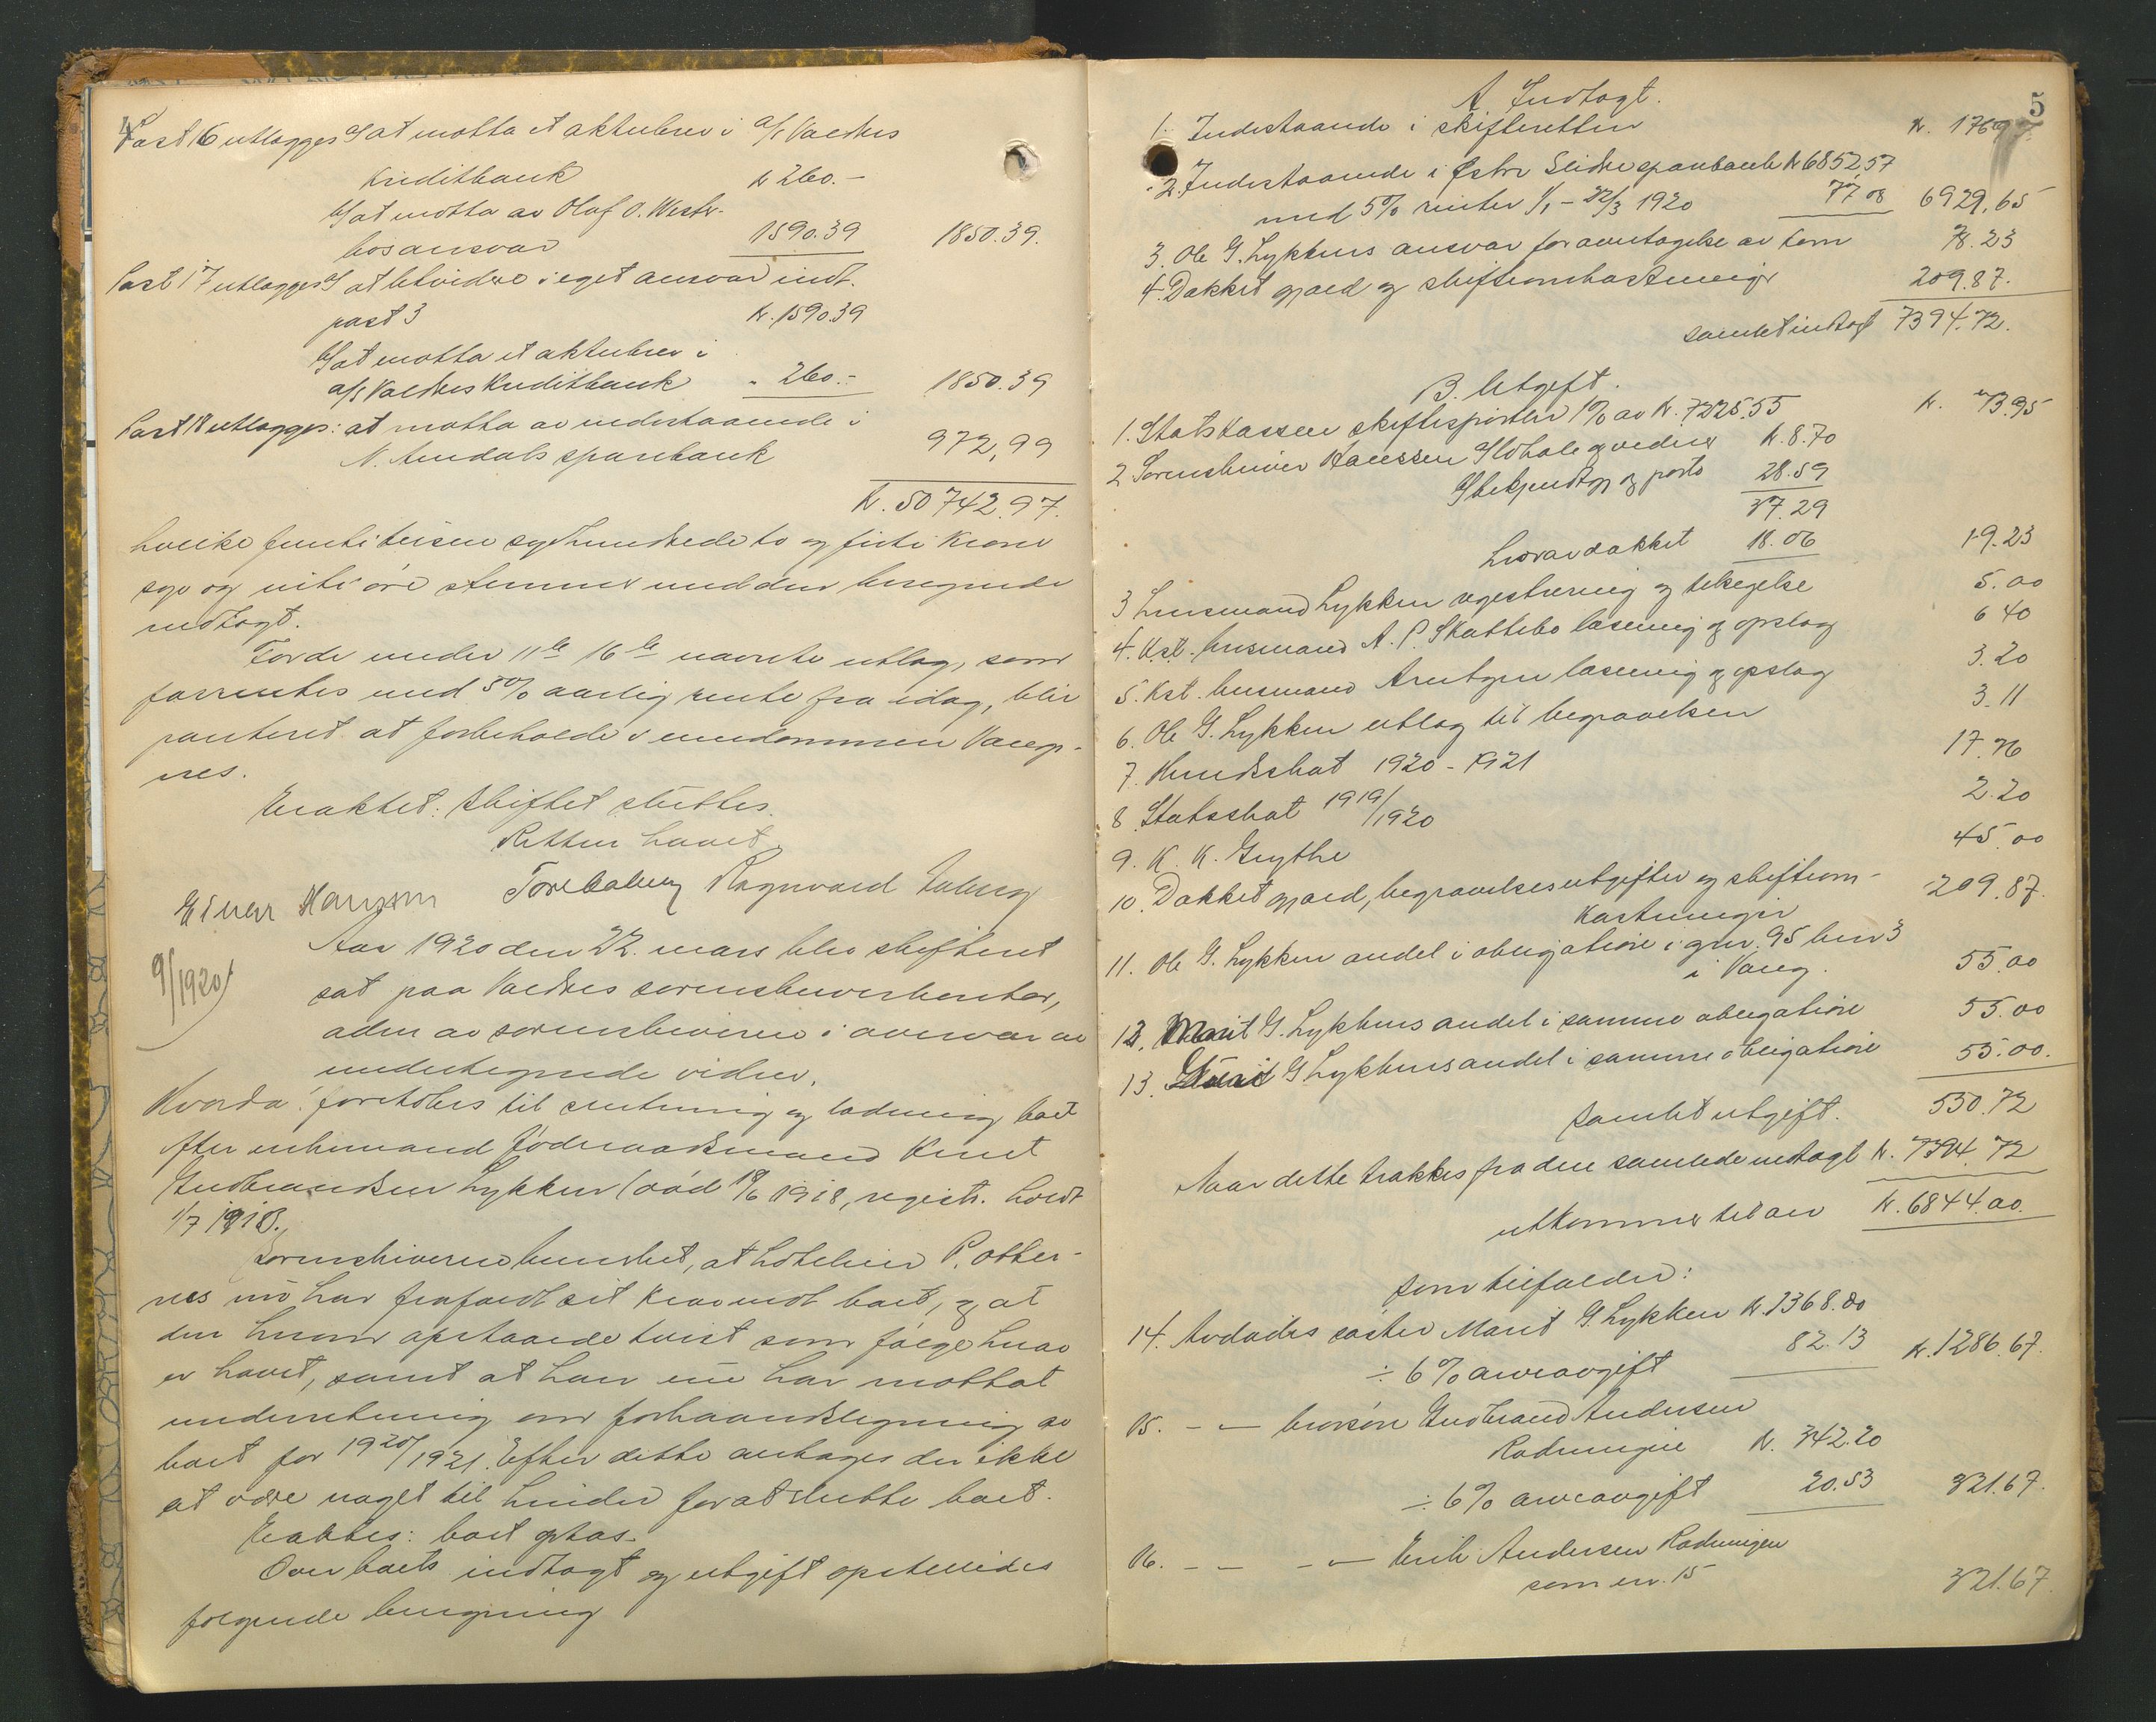 4
Post 16 utlægges % at motta et aktiebrev i a/s Valdres
Kreditbank kr 260.-
% at motta av Olaf O. Westr-
bös ansvar 1590.39 1850.39.
Post 17 utlægges % at likvidere i eget ansvar indt.
post 3 kr. 1590.39
% at motta et aktiebrev i
a/s Valdres Kreditbank " 260.- 1850.39
Post 18 utlægges: at motta av indestaaende i
N. Aurdals sparebank 972,99
kr. 50742.97.
hvilke femti tusen syvhundrede to og firti kroner
syv og nitti öre stemmer med den beregnede
indtægt.
For de under 11te 16te nævnte utlæg, som
forrentes med 5% aarlig rente fra idag, blir
panteret at forbeholde i eiendommen Vangs-
nes.
Eraktet: Skiftet sluttes.
Retten hævet.
Einar Hanssen Tore Ragnvald
9/1920
Aar 1920 den 22. mars blev skifteret
sat paa Valdres sorenskriverkontor,
adm. av sorenskriveren i overvær av
undertegnede vidner.
Hvorda: foretokes til slutning og lodning boet
efter ungkarmand föderaadsmand Knut
Gudbrandsen Lykken (död 19/6 1918, registr. holdt
1/7 1918.
Sorenskriveren bemerket, at hotelleier P. Otter-
nes nu har frafaldt sit krav mot boet, og at
den herom opstaaede tvist som fölge herav
er hævet, samt at han nu har mottat
underretning om forhaandsligning av
boet for 1920/1921. Efter dette antages der ikke
at være noget til hinder for at slutte boet.
Eraktes: boet optas.
Over boets indtægt og utgift opstilledes
følgende beregning
5
A. Indtægt.
1. Indestaaende i skifteretten kr. 176.97
2. Indestaaende i Østre Slidre sparebank kr 6852.57
med 5% renter 1/1 - 22/3 1920 77.08 6929,65
3. Ole G. Lykkens ansvar for avertagelse av 78.23
4. Dækket gjæld og skifteomkostninger 209.87.
samlet indtægt 7394.72.
B. Utgift.
1. Statskassen skiftesportler 1% av kr. 7225.55 kr. 73.95
2 Sorenskriver Hanssen % lokale og vidner kr. 8.70
% bekjendtgj. og porto 28.59
37.29
hvorav dækket 18.06 19.23
3 Lensmand Lykken registrering og tilsigelse 5.00
4. Kst. lensmand A. P. Skattebo læsning og opslag 6 40
5. Kst. lensmand læsning og opslag 3.20
6. Ole G. Lykken utlæg til begravelsen 3.11
7. Hundskat 1920-1921 17.76
8 Statsskat 1919/1920 2.20
9. K. K. Grythe 45.00
10. Dækket gjæld, begravelsesutgifter og skifteom-
kostninger 209.87.
11. Ole G. Lykken andel i obligation i gnr. 95 bnr 3
i Vang. 55.00
12. Marit G. Lykkens andel i samme obligation 55.00
13. Guri G Lykkens andel i samme obligation 55.00.
Samlet utgift. 550.72
Naar dette trækkes fra den samlede indtægt kr. 7394.72
utkommer til arv kr. 6844.00.
som tilfalder:
14. Avdödes søster Marit G. Lykken kr. 1368.80
÷ 6% arveavgift 82.13 kr. 1286.67.
15. - - brorsön Gudbrand Andersen
Rødningen kr. 342.20
÷ 6% arveavgift 20.53 321.67.
16. - - - - Erik Andersen Rødningen
som nr. 15 321.67.